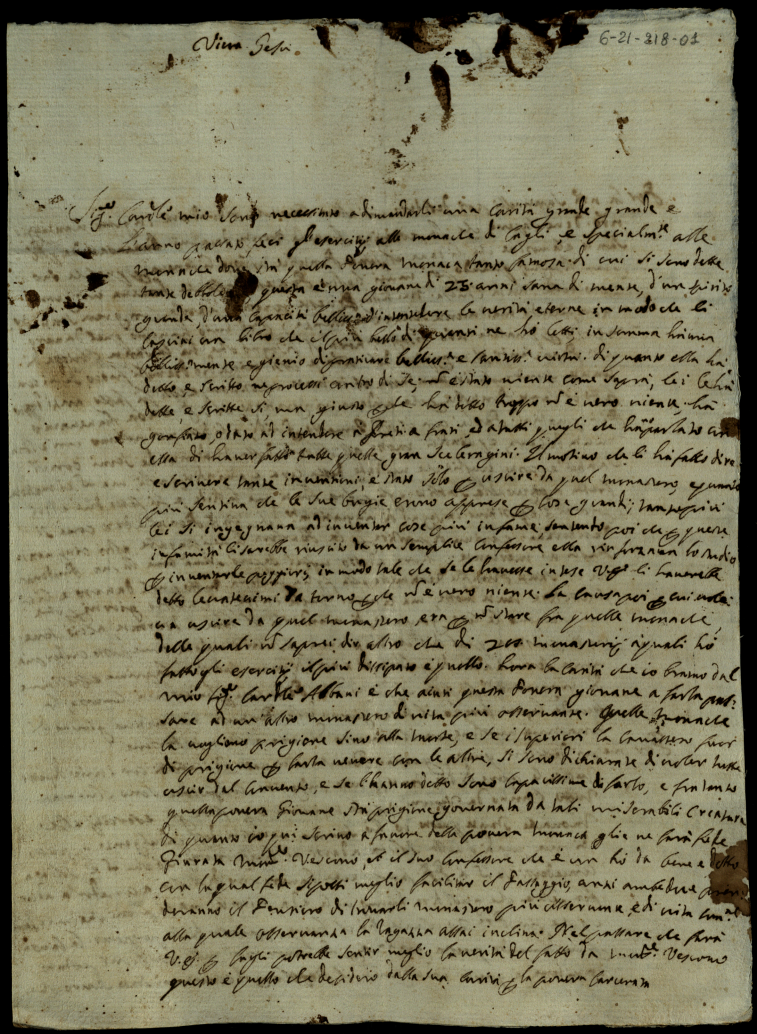 Viva Gesù.
6-21-218-01
Sig.r Card.le mio sono necessitato a dimandarli una carità grande grande e
l'anno passato feci gl'esercitij alle monache di Cagli, e specialm.te alle
monache dove stà quella povera monaca tanto famosa di cui si sono dette
tante questa è una giovane di 25 anni sana di mente, d'un spirito
grande, d'una capacità bellissima d'intendere le verità eterne in modo che li
lasciai un libro che il più bello di quanti ne hò letti, in somma hà una
mente, e piena di bellis.e e santiss.e virtù. di quanto ella hà
detto, e scritto ne processi contro di se, non è stato niente come saprà, lei le hà
dette, e scritte sì, ma giusto perche hà detto troppo non è vero niente, hà
dato ad intendere à Preti, e frati, ed a tutti quegli che hanno parlato con
essa di haver fatto tutte quelle gran sceleragini. Il motivo che li hà fatto dire
e scrivere tante inventioni, è stato solo per uscire da quel monastero, e quanto
più sentiva che le sue bugie erano apprese per cose grandi, tanto più
lei si ingegnava ad inventar cose più infami, sentendo poi che per queste
infamità li sarebbe riuscito da un semplice confessore ella rinforzava lo studio
per inventarle peggiori, in modo tale che se le havesse intese V.S. li haverebbe
detto levatecimi da torno perche non è vero niente. La causa poi per cui voleva
uscire da quel monastero, era per non stare fra quelle monache,
delle quali non saprei dir altro che di 200 monasterij à quali hò
fatto gli esercitij il più dissipato è quello. hora la carità che io bramo dal
mio Sig.r Card.le Albani è che aiuti questa povera giovane a farla pas=
sare ad un altro monastero di vita più osservante. Quelle monache
la vogliono prigione sino alla morte, e se i superiori la cavassero fuor
di prigione per farla vivere con le altre, si sono dichiarate di voler tutte
uscir dal convento, e se l'hanno detto sono capacissime di farlo, e fra tanto
quella povera giovane stà prigione, governata da tali miserabili creature
di quanto io qui scrivo a favore della povera monaca glie ne farà fede
giurata Mons.r Vescovo, et il suo confessore che è un hò da bene e dotto
con la qual fede si potrà meglio facilitare il passaggio, anzi ambedue pren=
deranno il pensiero di trovarli monastero più osservante, e di vita com.ne
alla quale osservanza la ragazza assai inclina. Nel passare che farà
V.S. per Cagli potrebbe sentir meglio la verità del fatto da Mons.r Vescovo
questo è quello che desidero dalla sua carità per la povera carcerata